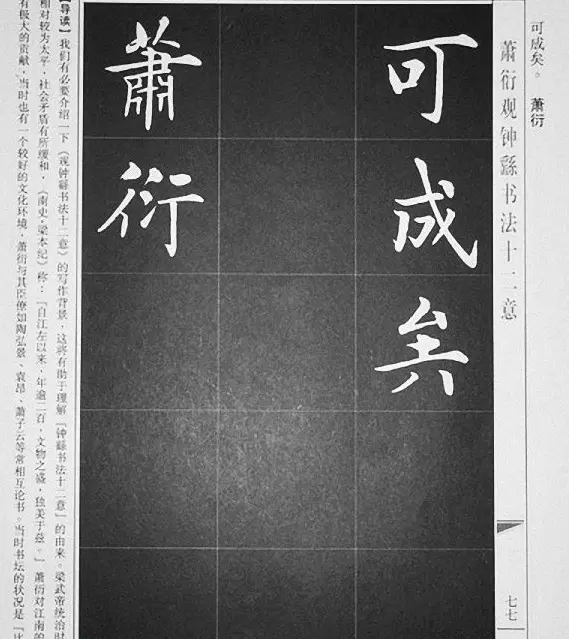 可成矣。 萧衍
萧衍观钟繇书法十二意
七七
可成矣
萧衍
【导读】我们有必要介绍一下《观钟繇书法十二意》的写作背景，这将有助于理解『钟繇书法十二意』的由来。梁武帝统治时
相对较为太平，社会矛盾有所缓和，《南史·梁本纪》称：『自江左以来，年逾二百，文物之盛，独美于兹。』萧衍对江南的
有极大的贡献，当时也有一个较好的文化环境，萧衍与其臣僚如陶弘景、袁昂、萧子云等常相互论书。当时书坛的状况是『比